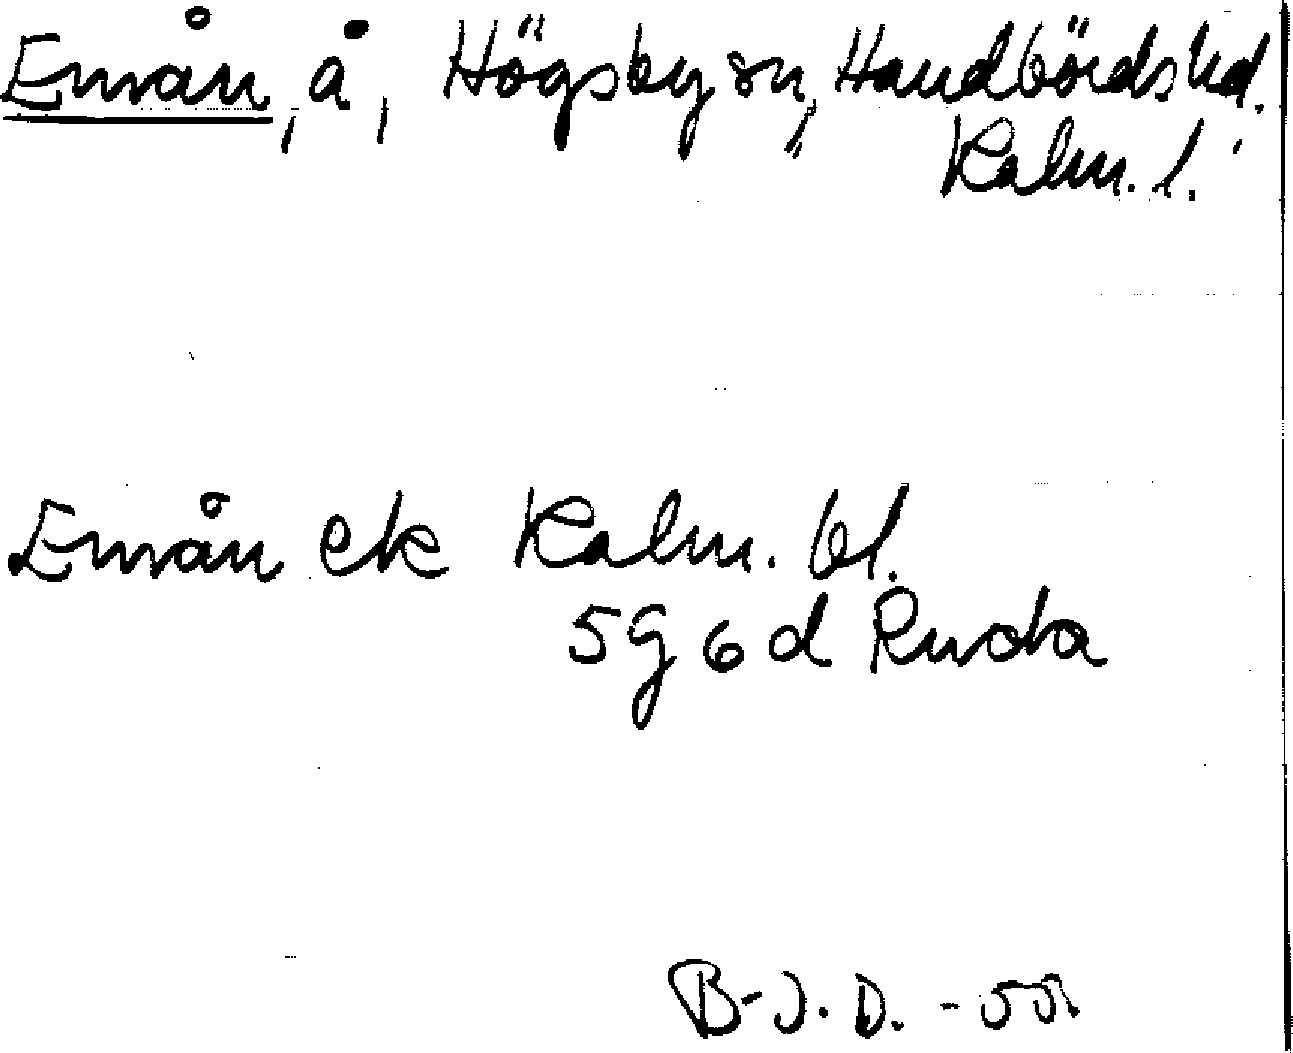 Emån, å, Högsby sn, Handbörds hd,
Kalm. l.
Emån ek Kalm. bl.
5g6d Ruda
B-J. D. - 55